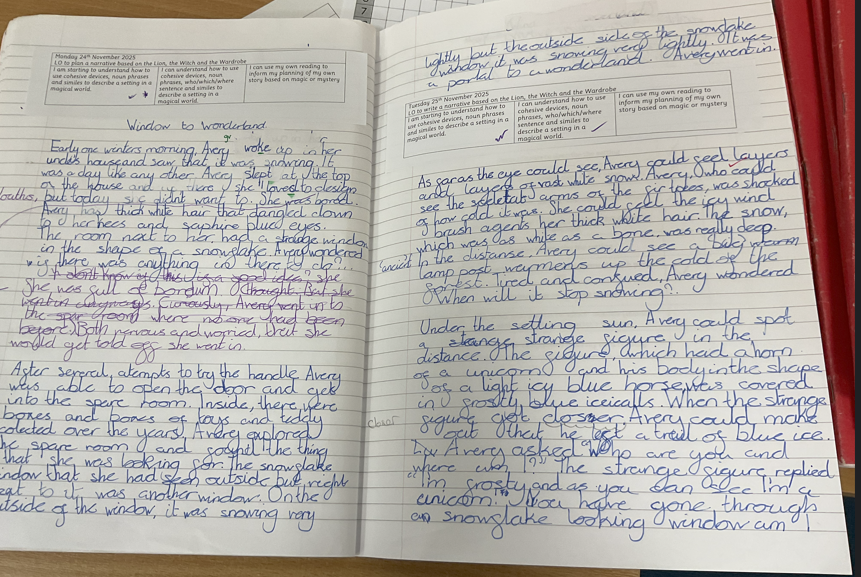 Monday 24th November 2025
LO to plan a narrative based on the Lion, the Witch and the Wardrobe
I am starting to understand how to use cohesive devices, noun phrases and similes to describe a setting in a magical world.
I can understand how to use cohesive devices, noun phrases, who/which/where sentence and similes to describe a setting in a magical world.
I can use my own reading to inform my planning of my own story based on magic or mystery
Window to Wonderland
Early one winters morning, Avery woke up in her
undushouse and saw that it was snowing. It
was a day like any other. Avery slept at the top
of the house and she loved to design
clouthes, but today she didnt want to. She was bored.
Avery has thick white hair that dangled down
to her hees and saphire blue eyes.
The room next to her had a strange window
in the shape of a snowflake. Avery wondered
if there was anything in there to do.
"I don't know if this is a good idea," she
She was full of bordum thought. But she
went in anyways. Curiously, Avery went in to
the spar room where no one had been
before. Both nervous and worried, that she
would get told off she went in.
After several, atempts to try the handle Avery
was able to open the door and get
into the spare room. Inside, there were
boxes and boxes of toys and teddy
colected over the years, Avery explored
the spare room and the thing
that she was looking for. The snowflake
window that she had seen outside but right
next to it was another window. On the
outside of the window, it was snowing very
lightly but the outside side of the snowflake
window, it was snowing very lightly. It was
a portal to a wonderland. Avery went in.
Tuesday 25th November 2025
LO to write a narrative based on the Lion, the Witch and the Wardrobe
I am starting to understand how to use cohesive devices, noun phrases and similes to describe a setting in a magical world.
I can understand how to use cohesive devices, noun phrases, who/which/where sentence and similes to describe a setting in a magical world.
I can use my own reading to inform my planning of my own story based on magic or mystery
As far as the eye could see, Avery could see layers
and layers of vast white snow. Avery, who could
see the skeletal arms of the fir trees, was shocked
of how cold it was. She could feel the icy wind
brush agents her thick white hair. The snow,
which was as white as a bone, was really deep.
In the distanse, Avery could see a big warm
'ancient'
lamp post warmens up the cold of the
forest. Tired and confused, Avery wondered
"When will it stop snowing?".
Under the setting sun, Avery could spot
a strange figure in the
distance. The figure which had a horn
of a unicorn and his body in the shape
of a light icy blue horse was covered
in frostly blue iceicalls. When the strange
closer
figure got closer Avery could make
out that he left a treil of blue ice.
Avery asked "Who are you and
where am I?" The strange figure replied
"I'm frosty and as you can see I'm a
unicorn." "You have gone through
an snowflake looking window am I